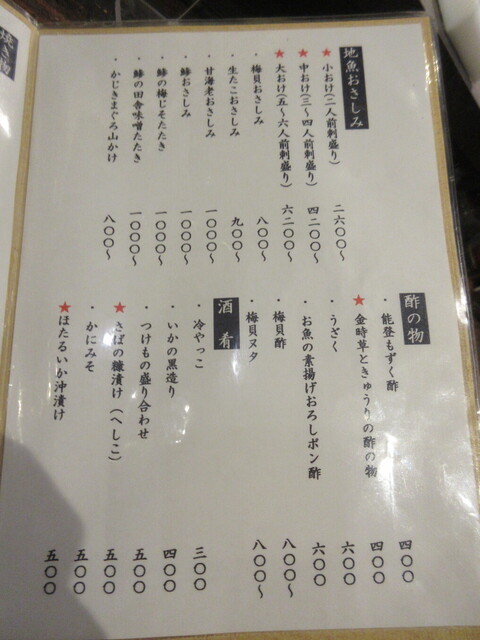 地魚おさしみ
★小おけ(二人前刺盛り) 二六〇〇〜
★中おけ(三〜四人前刺盛り) 四二〇〇〜
★大おけ(五〜六人前刺盛り) 六二〇〇〜
・梅貝おさしみ 八〇〇〜
・生たこおさしみ 九〇〇〜
・甘海老おさしみ 一〇〇〇〜
・鯵おさしみ 一〇〇〇〜
・鯵の梅じそたたき 一〇〇〇〜
・鯵の田舎味噌たたき 一〇〇〇〜
・かじきまぐろ山かけ 八〇〇〜
酢の物
・能登もずく酢 四〇〇
★金時草ときゅうりの酢の物 四〇〇
・うざく 六〇〇
・お魚の素揚げおろしポン酢 六〇〇
・梅貝酢 八〇〇〜
・梅貝ヌタ 八〇〇〜
酒肴
・冷やっこ 三〇〇
・いかの黒造り 四〇〇
・つけもの盛り合わせ 五〇〇
★さばの糠漬け(へしこ) 五〇〇
・かにみそ 五〇〇
★ほたるいか沖漬け 五〇〇